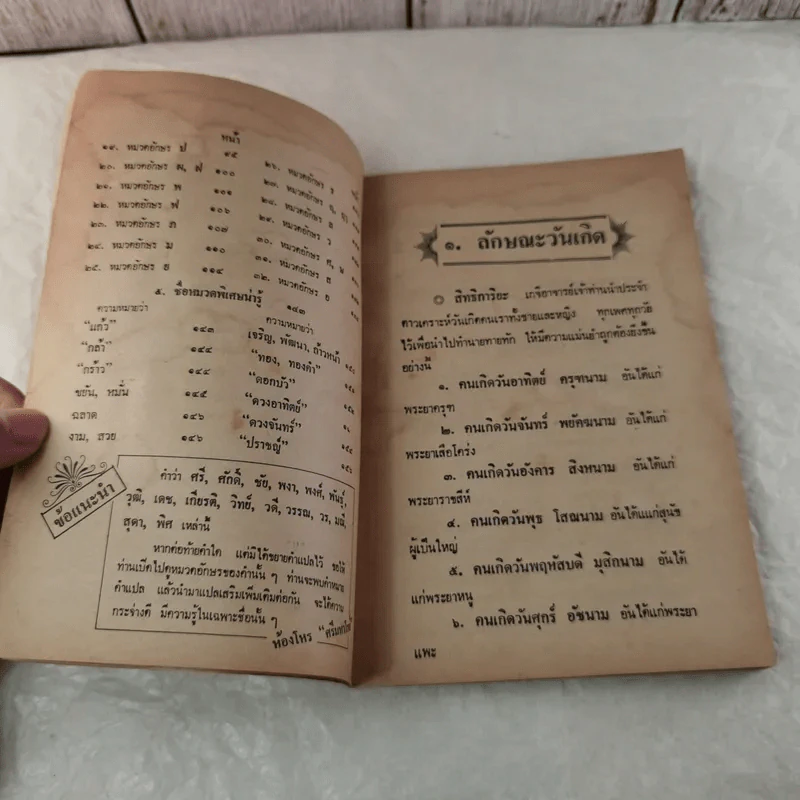 หน้า
๑๙. หมวดอักษร ป ๙๕
๒๐. หมวดอักษร ผ, ฝ ๑๐๐
๒๑. หมวดอักษร พ ๑๐๑
๒๒. หมวดอักษร ฟ ๑๐๖
๒๓. หมวดอักษร ภ ๑๐๗
๒๔. หมวดอักษร ม ๑๑๐
๒๕. หมวดอักษร ย ๑๑๔
๒๖. หมวดอักษร ร
๒๗. หมวดอักษร
๒๘. หมวดอักษร ล
๒๙. หมวดอักษร ว
๓๐. หมวดอักษร ศ,
๓๑. หมวดอักษร ส
๓๒. หมวดอักษร อ
๕. ชื่อหมวดพิเศษน่ารู้ ๑๔๓
ความหมายว่า
"แก้ว" ๑๔๓
"กล้า" ๑๔๔
"กร้าว" ๑๔๔
ขยัน, หมั่น ๑๔๕
ฉลาด ๑๔๖
งาม, สวย ๑๔๖
ความหมายว่า
เจริญ, พัฒนา, ก้าวหน้า
"ทอง, ทองคำ"
"ดอกบัว"
"ดวงอาทิตย์"
"ดวงจันทร์"
"ปราชญ์"
ข้อแนะนำ
คำว่า ศรี, ศักดิ์, ชัย, พงา, พงศ์, พันธุ์,
วุฒิ, เดช, เกียรติ, วิทย์, วดี, วรรณ, วร, มณี,
สุดา, พิศ เหล่านี้
หากต่อท้ายคำใด แต่มิได้ขยายคำแปลไว้ ขอให้
ท่านเปิดไปดูหมวดอักษรของคำนั้น ๆ ท่านจะพบคำหมาย
คำแปล แล้วนำมาแปลเสริมเพิ่มเติมต่อกัน จะได้ความ
กระจ่างดี มีความรู้ในเฉพาะชื่อนั้น ๆ
ห้องโหร
๑. ลักษณะวันเกิด
๏ สิทธิการิยะ เกจิอาจารย์เจ้าท่านนำประจำ
ดาวเคราะห์วันเกิดคนเราทั้งชายและหญิง ทุกเพศทุกวัย
ไว้เพื่อนำไปทำนายทายทัก ให้มีความแม่นยำถูกต้องยิ่งขึ้น
อย่างนี้
๑. คนเกิดวันอาทิตย์ ครุฑนาม อันได้แก่
พระยาครุฑ
๒. คนเกิดวันจันทร์ พยัคฆนาม อันได้แก่
พระยาเสือโคร่ง
๓. คนเกิดวันอังคาร สิงหนาม อันได้แก่
พระยาราชสีห์
๔. คนเกิดวันพุธ โสณนาม อันได้แแก่สุนัข
ผู้เป็นใหญ่
๕. คนเกิดวันพฤหัสบดี มุสิกนาม อันได้
แก่พระยาหนู
๖. คนเกิดวันศุกร์ อัชนาม อันได้แก่พระยา
แพะ